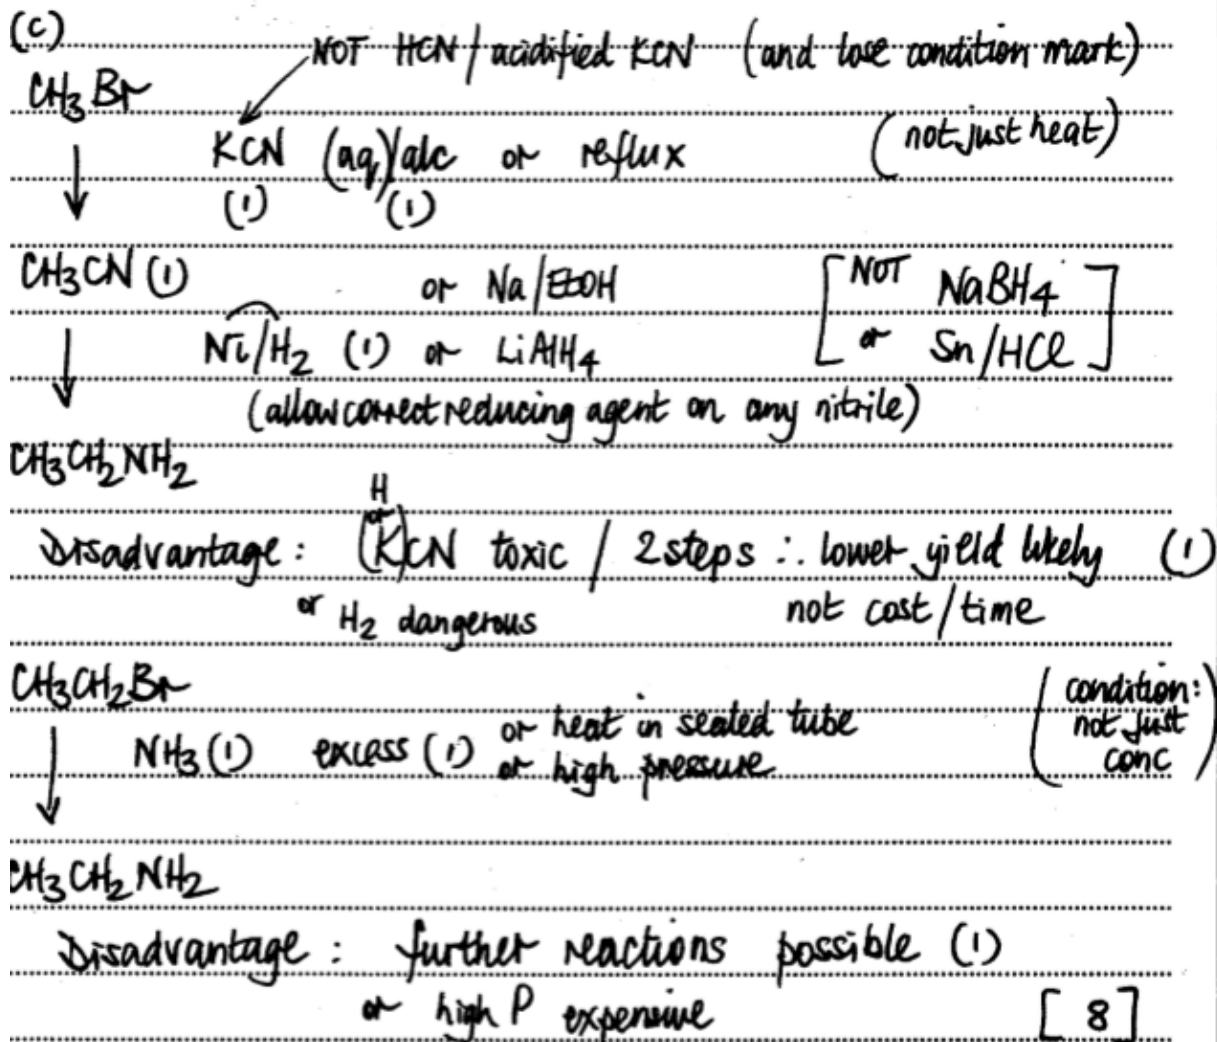 (c)
NOT HCN / acidified KCN (and lose condition mark)
CH₃Br
KCN (aq)/alc or reflux (not just heat)
(1) (1)
↓
CH₃CN (1) or Na/EtOH [NOT NaBH₄
Ni/H₂ (1) or LiAlH₄ or Sn/HCl]
↓
(allow correct reducing agent on any nitrile)
CH₃CH₂NH₂
H
or
Disadvantage: (K)CN toxic / 2 steps ∴ lower yield likely (1)
or H₂ dangerous not cost/time
CH₃CH₂Br (condition:
or heat in sealed tube not just
NH₃ (1) excess (1) or high pressure conc)
↓
CH₃CH₂NH₂
Disadvantage: further reactions possible (1)
or high P expensive [8]